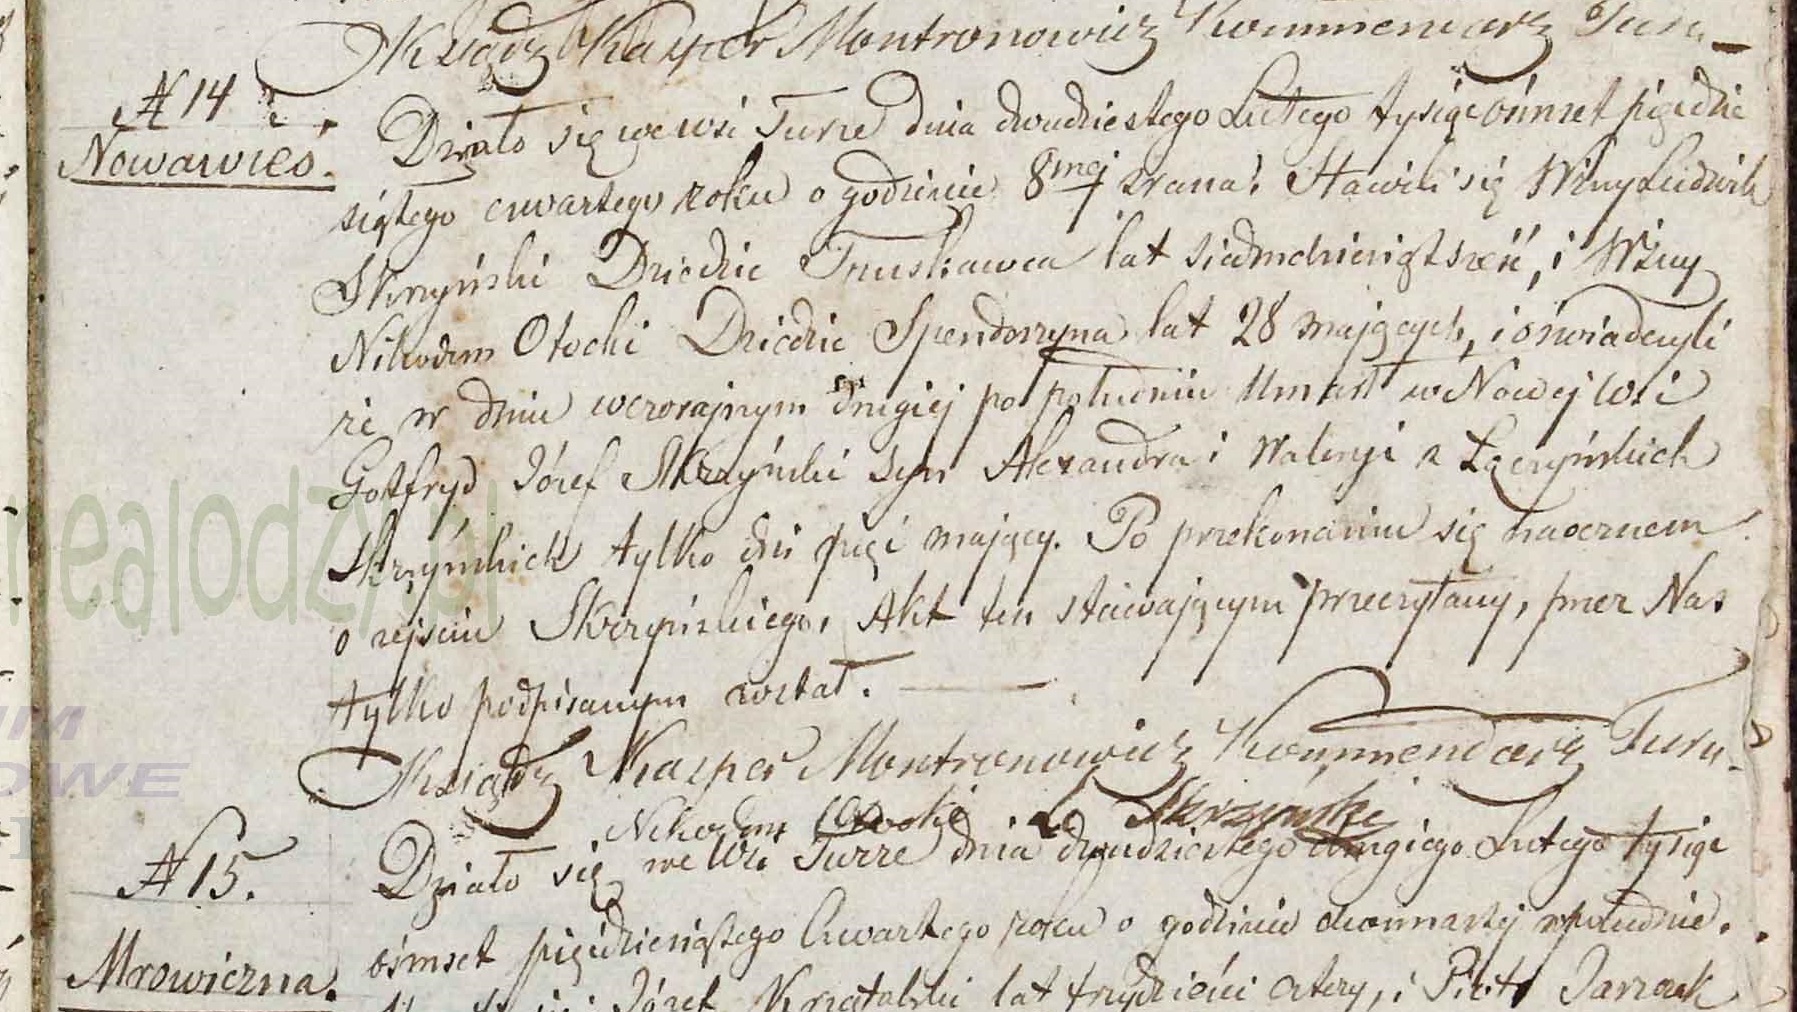 Ksiądz Kasper Montronowicz Kommendarz Tura
N 14
Nowawieś.
Działo się we wsi Turze dnia dwudziestego Lutego tysiąc ośmset pięćdzie
siątego czwartego roku o godzinie 8mej zrana. Stawili się Wżny Ludwik
Skrzyński Dziedzic Truskawca lat siedmdziesiąt sześć, i Wżny
Nikodem Otocki Dziedzic Spendoszyna lat 28 mających, i oświadczyli
że w dniu wczorajszym drugiej po południu Umarł w Nowej Wsi
Gotfryd Józef Skrzyński syn Alexandra i Waleryi z Łączyńskich
Skrzyńskich tylko dni pięć mający. Po przekonaniu się naocznem
o zejściu Skrzyńskiego, Akt ten stawającym przeczytany, przez Nas
tylko podpisanym został.
Ksiądz Kasper Montronowicz Kommendarz Tura
Nikodem Otocki L Skrzyński
N 15.
Mrowiczna.
Działo się we Wsi Turze dnia dwudziestego drugiego Lutego tysiąc
ośmset pięćdziesiątego Czwartego roku o godzinie dwunastej w południe.
Józef Krzątalski lat trzydzieści cztery, i Piotr Jarzak
nealodz.pl
UM
OWE